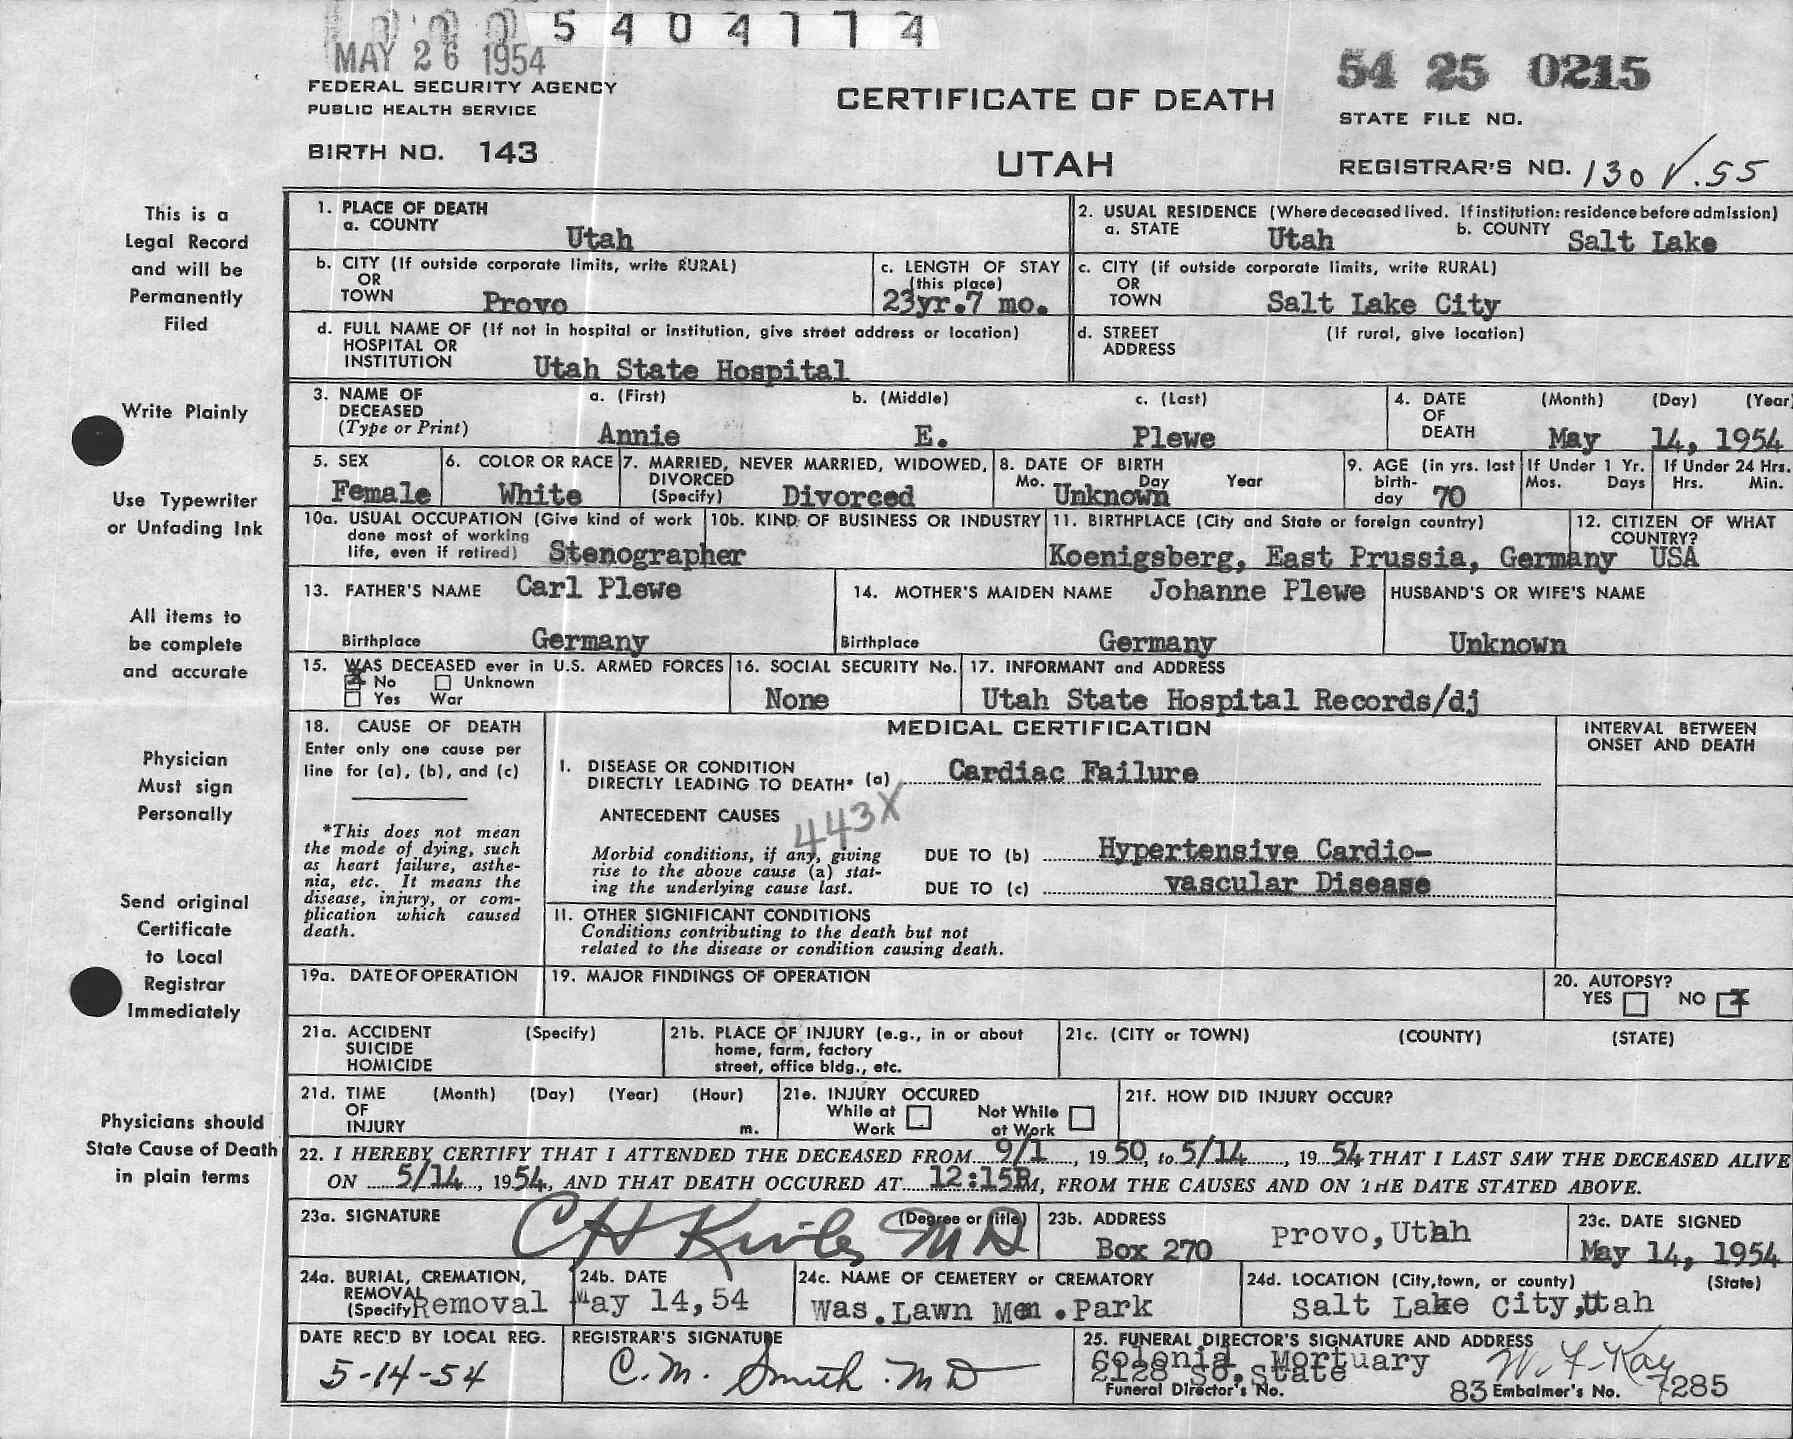 5404774
MAY 26 1954
54 25 0215
FEDERAL SECURITY AGENCY
PUBLIC HEALTH SERVICE
CERTIFICATE OF DEATH
STATE FILE NO.
BIRTH NO. 143
UTAH
REGISTRAR'S NO. 130 V.55
This is a
Legal Record
and will be
Permanently
Filed
Write Plainly
Use Typewriter
or Unfading Ink
All items to
be complete
and accurate
Physician
Must sign
Personally
Send original
Certificate
to Local
Registrar
Immediately
Physicians should
State Cause of Death
in plain terms
1. PLACE OF DEATH
a. COUNTY Utah
2. USUAL RESIDENCE (Where deceased lived. If institution: residence before admission)
a. STATE Utah b. COUNTY Salt Lake
b. CITY (If outside corporate limits, write RURAL)
OR
TOWN Provo
c. LENGTH OF STAY
(this place)
23yr.7 mo.
c. CITY (if outside corporate limits, write RURAL)
OR
TOWN Salt Lake City
d. FULL NAME OF (If not in hospital or institution, give street address or location)
HOSPITAL OR
INSTITUTION Utah State Hospital
d. STREET (If rural, give location)
ADDRESS
3. NAME OF a. (First) b. (Middle) c. (Last)
DECEASED
(Type or Print) Annie E. Plewe
4. DATE (Month) (Day) (Year)
OF
DEATH May 14, 1954
5. SEX
Female
6. COLOR OR RACE
White
7. MARRIED, NEVER MARRIED, WIDOWED,
DIVORCED
(Specify) Divorced
8. DATE OF BIRTH
Mo. Day Year
Unknown
9. AGE (in yrs. last
birth-
day 70
If Under 1 Yr.
Mos. Days
If Under 24 Hrs.
Hrs. Min.
10a. USUAL OCCUPATION (Give kind of work
done most of working
life, even if retired) Stenographer
10b. KIND OF BUSINESS OR INDUSTRY
11. BIRTHPLACE (City and State or foreign country)
Koenigsberg, East Prussia, Germany
12. CITIZEN OF WHAT
COUNTRY?
USA
13. FATHER'S NAME Carl Plewe
Birthplace Germany
14. MOTHER'S MAIDEN NAME Johanne Plewe
Birthplace Germany
HUSBAND'S OR WIFE'S NAME
Unknown
15. WAS DECEASED ever in U.S. ARMED FORCES
x No Unknown
Yes War
16. SOCIAL SECURITY No.
None
17. INFORMANT and ADDRESS
Utah State Hospital Records/dj
18. CAUSE OF DEATH
Enter only one cause per
line for (a), (b), and (c)
*This does not mean
the mode of dying, such
as heart failure, asthe-
nia, etc. It means the
disease, injury, or com-
plication which caused
death.
MEDICAL CERTIFICATION
INTERVAL BETWEEN
ONSET AND DEATH
I. DISEASE OR CONDITION
DIRECTLY LEADING TO DEATH* (a) Cardiac Failure
ANTECEDENT CAUSES
443X
Morbid conditions, if any, giving
rise to the above cause (a) stat-
ing the underlying cause last.
DUE TO (b) Hypertensive Cardio-
DUE TO (c) vascular Disease
II. OTHER SIGNIFICANT CONDITIONS
Conditions contributing to the death but not
related to the disease or condition causing death.
19a. DATE OF OPERATION
19. MAJOR FINDINGS OF OPERATION
20. AUTOPSY?
YES NO x
21a. ACCIDENT (Specify)
SUICIDE
HOMICIDE
21b. PLACE OF INJURY (e.g., in or about
home, farm, factory
street, office bldg., etc.
21c. (CITY or TOWN) (COUNTY) (STATE)
21d. TIME (Month) (Day) (Year) (Hour)
OF
INJURY m.
21e. INJURY OCCURED
While at Not While
Work at Work
21f. HOW DID INJURY OCCUR?
22. I HEREBY CERTIFY THAT I ATTENDED THE DECEASED FROM 9/1, 1950, to 5/14, 1954 THAT I LAST SAW THE DECEASED ALIVE
ON 5/14, 1954, AND THAT DEATH OCCURED AT 12:15PM, FROM THE CAUSES AND ON THE DATE STATED ABOVE.
23a. SIGNATURE (Degree or title)
C H MD
23b. ADDRESS
Box 270 Provo, Utah
23c. DATE SIGNED
May 14, 1954
24a. BURIAL, CREMATION,
REMOVAL
(Specify) Removal
24b. DATE
May 14, 54
24c. NAME OF CEMETERY or CREMATORY
Was. Lawn Mem. Park
24d. LOCATION (City, town, or county) (State)
Salt Lake City, Utah
DATE REC'D BY LOCAL REG.
5-14-54
REGISTRAR'S SIGNATURE
C.M. Smith. MD
25. FUNERAL DIRECTOR'S SIGNATURE AND ADDRESS
Colonial Mortuary W. F. Kay
2128 So. State
Funeral Director's No. 83 Embalmer's No. 7285